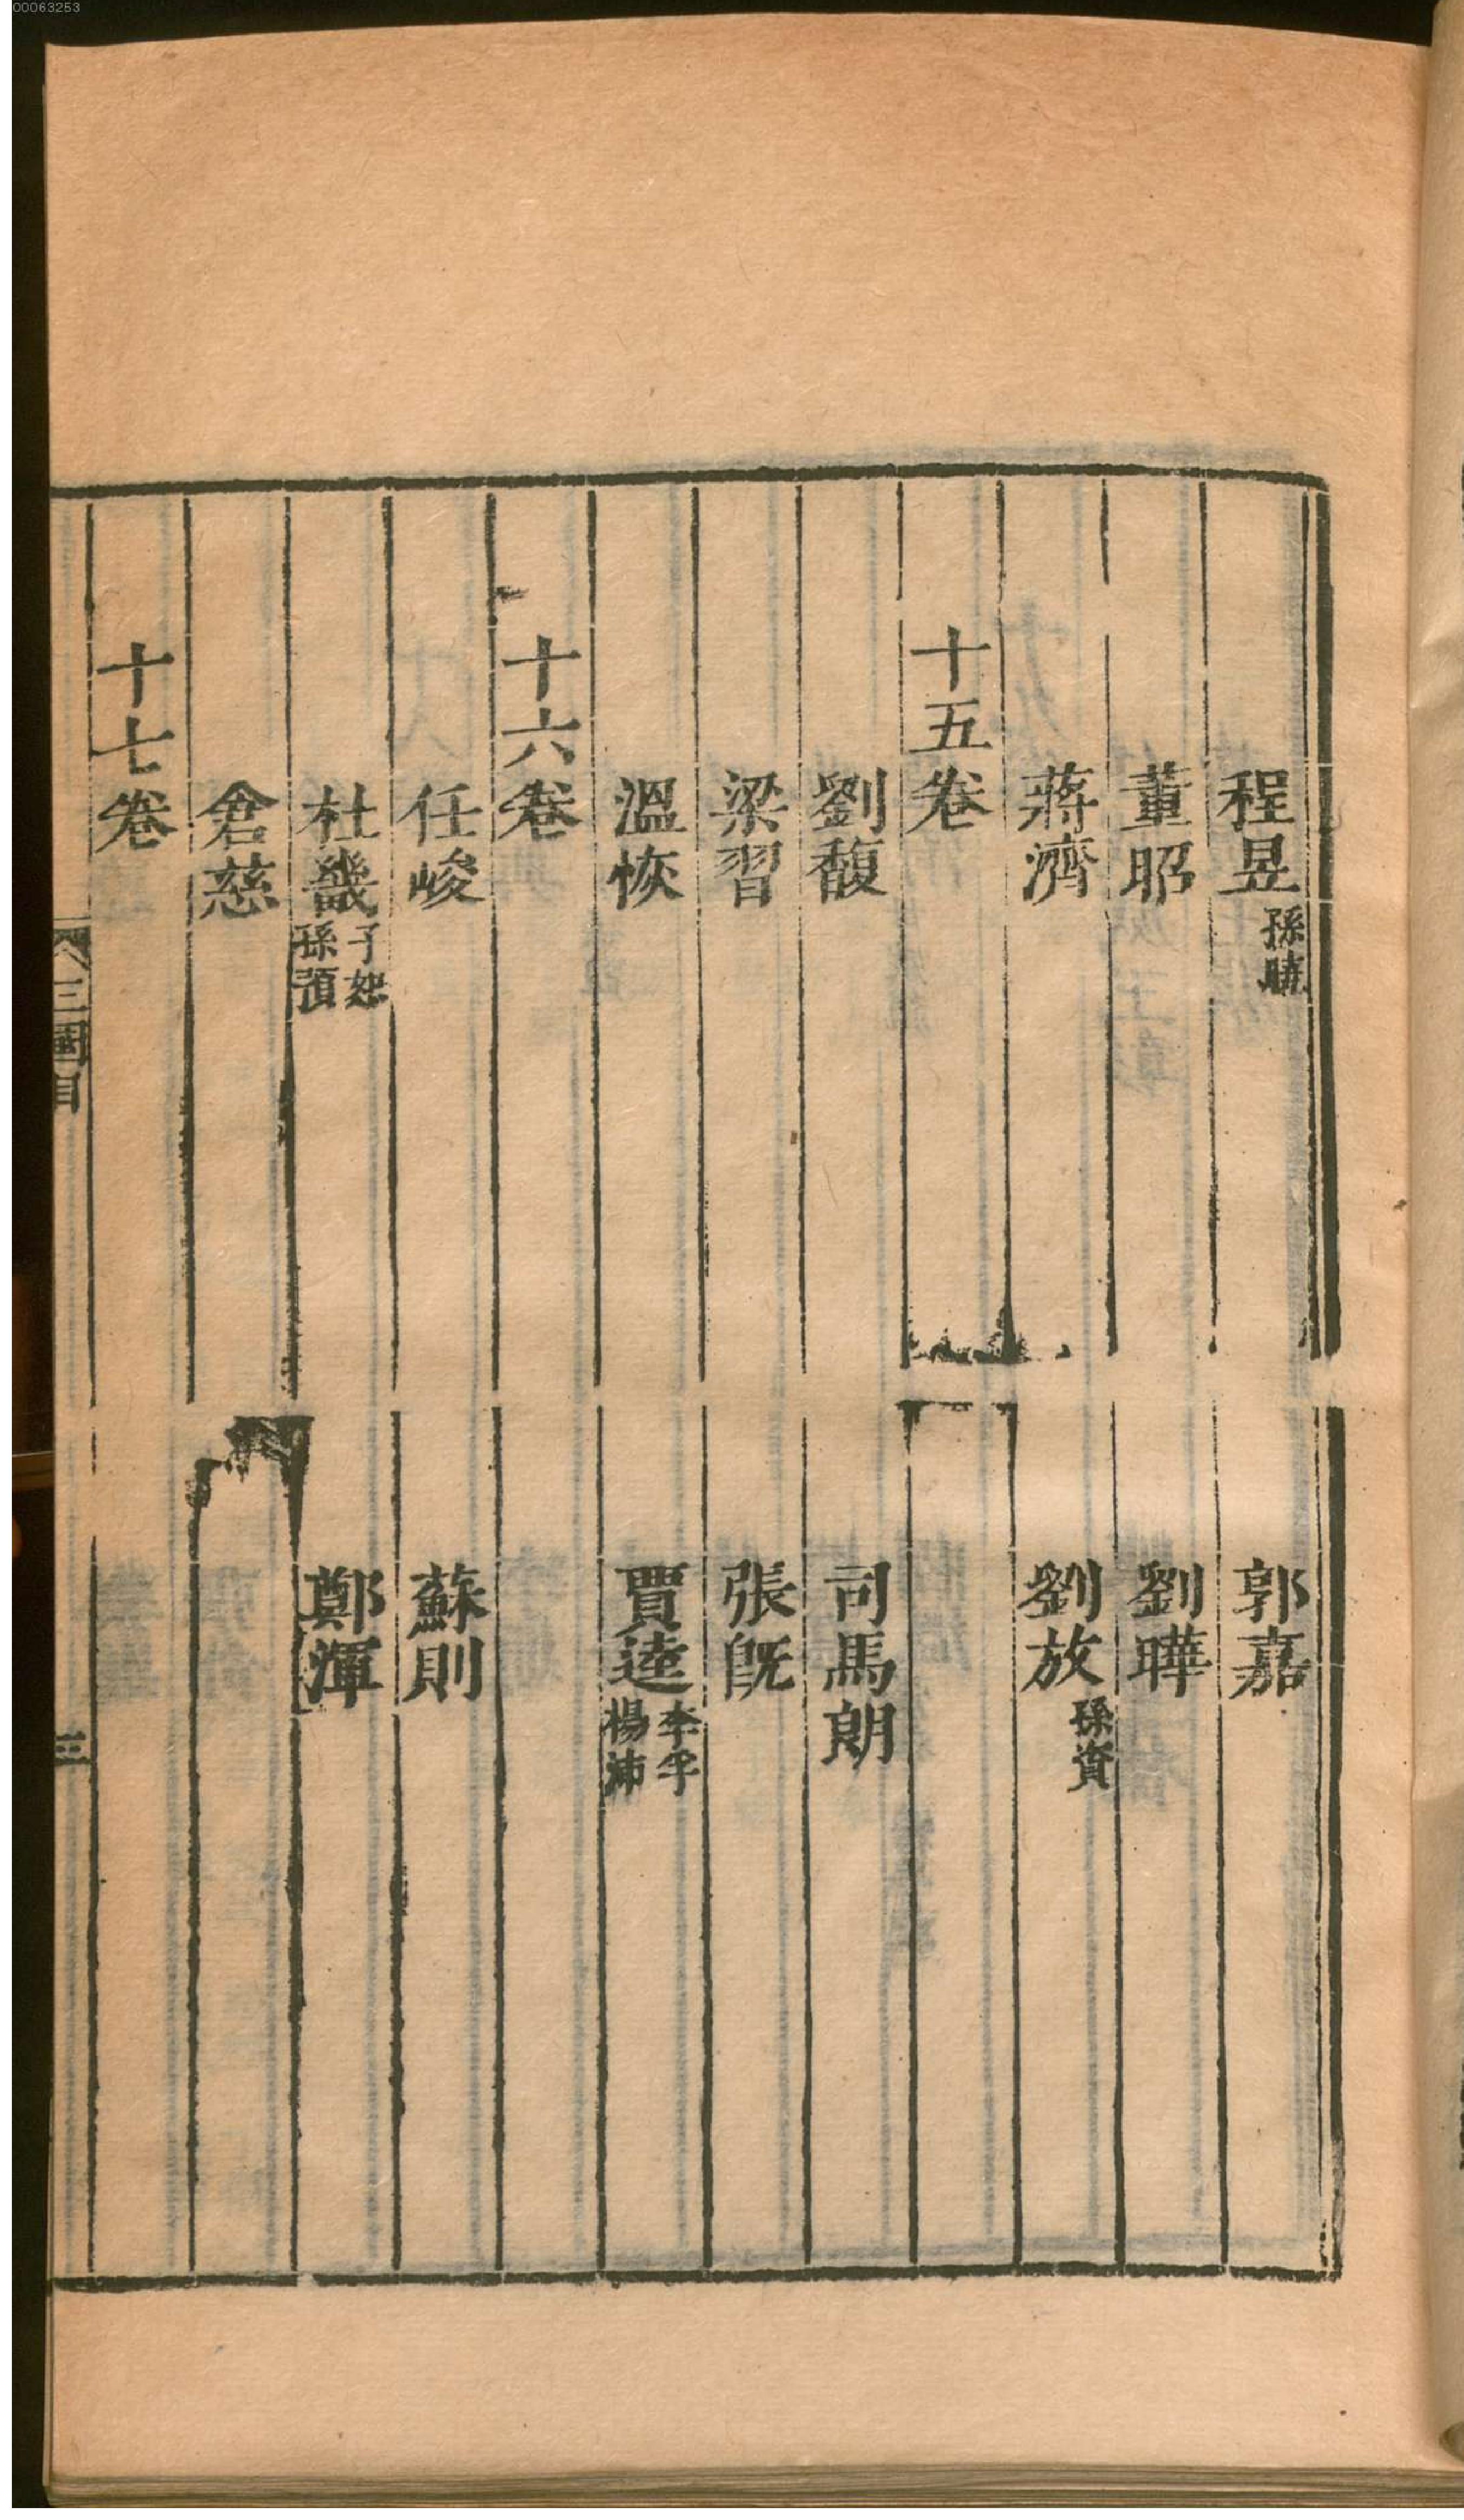 00063253
程昱 孫曉 郭嘉
董昭 劉曄
蔣濟 劉放 孫資
十五卷
劉馥 司馬朗
梁習 張旣
溫恢 賈逵 李孚 楊沛
十六卷
任峻 蘇則
杜畿 子恕 孫預 鄭渾
倉慈
十七卷
三國目 三